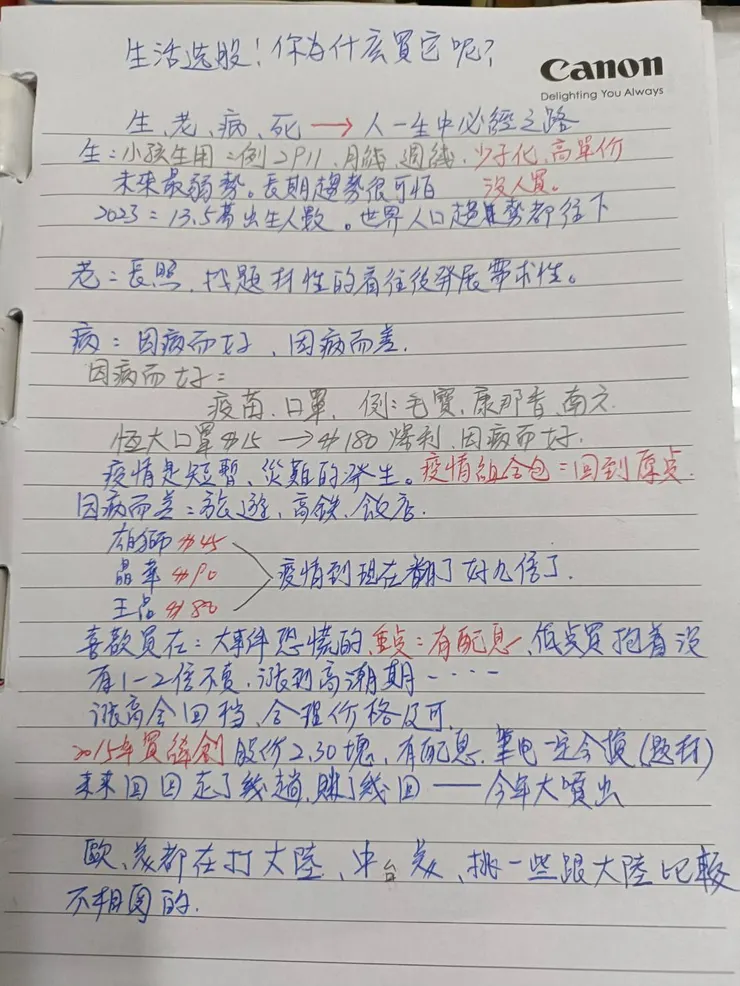 生活选股！你为什么買它呢？
Canon
Delighting You Always
生、老、病、死 → 人一生中必經之路
生：小孩生用：例2911，月线 週线，少子化，高單价
未來最弱勢。長期趨勢很可怕 沒人買。
2023=13.5萬出生人數。世界人口趨勢都往下
老：長照，找題材性的看往後發展需求性。
病：因病而好、因病而差.
因病而好：
疫苗.口罩, 例：毛寶,康那香,南六
恒大口罩$15 → $180 爆利,因病而好.
疫情是短暫、災難的發生。疫情組合包=回到原点.
因病而差：旅遊、高鉄、飯店.
雄獅 $45
晶華 $90 疫情到現在翻了好几倍了.
王品 $80
喜歡買在：大事件恐慌的,重点：有配息,低点買抱着沒
有1-2倍不賣,漲到高潮期‧‧‧‧
漲高会回档,合理价格及可.
2015年買緯創 股价2,30塊,有配息.筆电一定会換(題材)
未來回回走了幾趟,賺了幾回——今年大噴出
歐、美都在打大陸、中台美、挑一些跟大陸比較
不相關的.